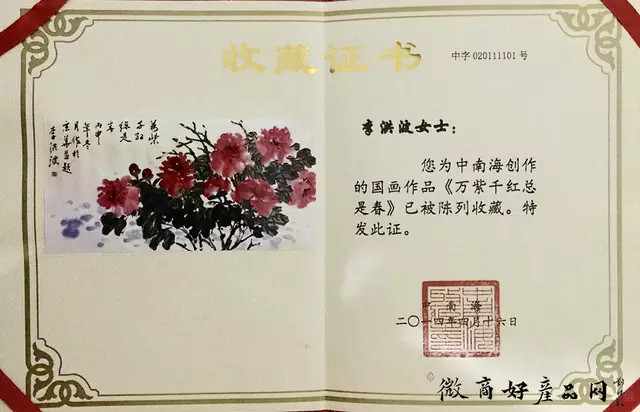 收藏证书
中字 020111101 号
万紫
千红
总是
春
丙申
年冬
月作於
京华并题
李洪波
李洪波女士：
您为中南海创作
的国画作品《万紫千红总
是春》已被陈列收藏。特
发此证。
中南海
二〇一四年四月十六日
微商好產品网